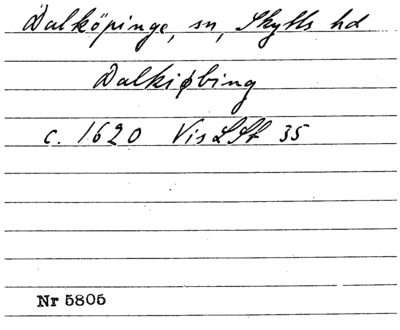 Dalköpinge, sn, Skytts hd
Dalkiøbing
c. 1620 Vis LSt 35
Nr 5805